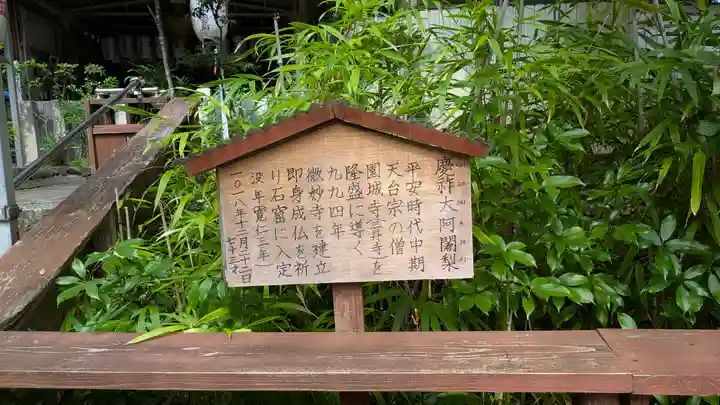 慶祚大阿闍梨
平安時代中期
天台宗の僧
園城寺三井寺を
隆盛に導く
九九四年
微妙寺を建立
即身成仏を祈
り石窟に入定
没年寛仁三年
一〇一八年十二月二十二日
七十三才